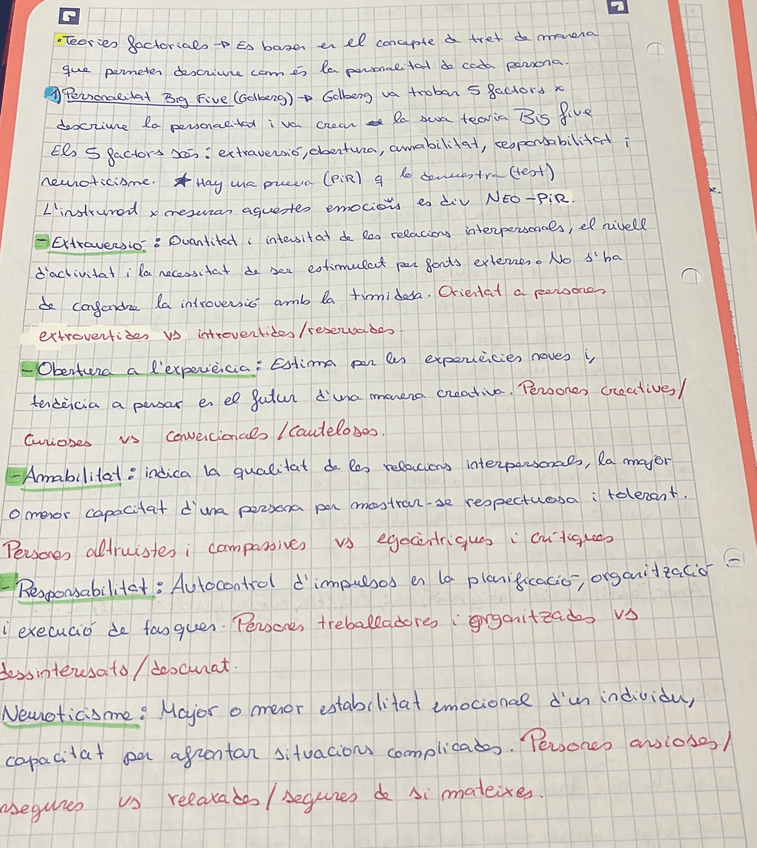 • Teories factorials → Es basen en el concepte de tret de manera
que permeten descriure com és la personalitat de cada persona.
1) Personalitat Big Five (Golberg) → Golberg va trobar 5 factors x
descriure la personalitat i va crear la seva teoria Big five
Els 5 factors són: extraversió, obertura, amabilitat, responsabilitat i
neuroticisme. * Hay una prueva (PiR) q lo demuestra (test)
L'instrument x mesurar aquestes emocions es diu NEO-PiR.
- Extraversió: Quantitat i intensitat de les relacions interpersonals, el nivell
d'activitat i la necessitat de ser estimulat per fonts externes. No s'ha
de confondre la introversió amb la timidesa. Orientat a persones
extrovertides vs introvertides/reservades
- Obertura a l'experiència: Estima per les experiències noves i,
tendència a pensar en el futur d'una manera creativa. Persones creatives/
Curioses vs convencionals/cauteloses.
- Amabilitat: indica la qualitat de les relacions interpersonals, la major
o menor capacitat d'una persona per mostrar-se respectuosa i tolerant.
Persones altruistes i compassives vs egocèntriques i crítiques
- Responsabilitat: Autocontrol d'impulsos en la planificació, organització
i execució de tasques. Persones treballadores i organitzades vs
dessinteresats/descurat.
Neuroticisme: Major o menor estabilitat emocional d'un individu,
capacitat per afrontar situacions complicades. Persones ansioses/
nsegures vs relaxades/segures de si mateixes.